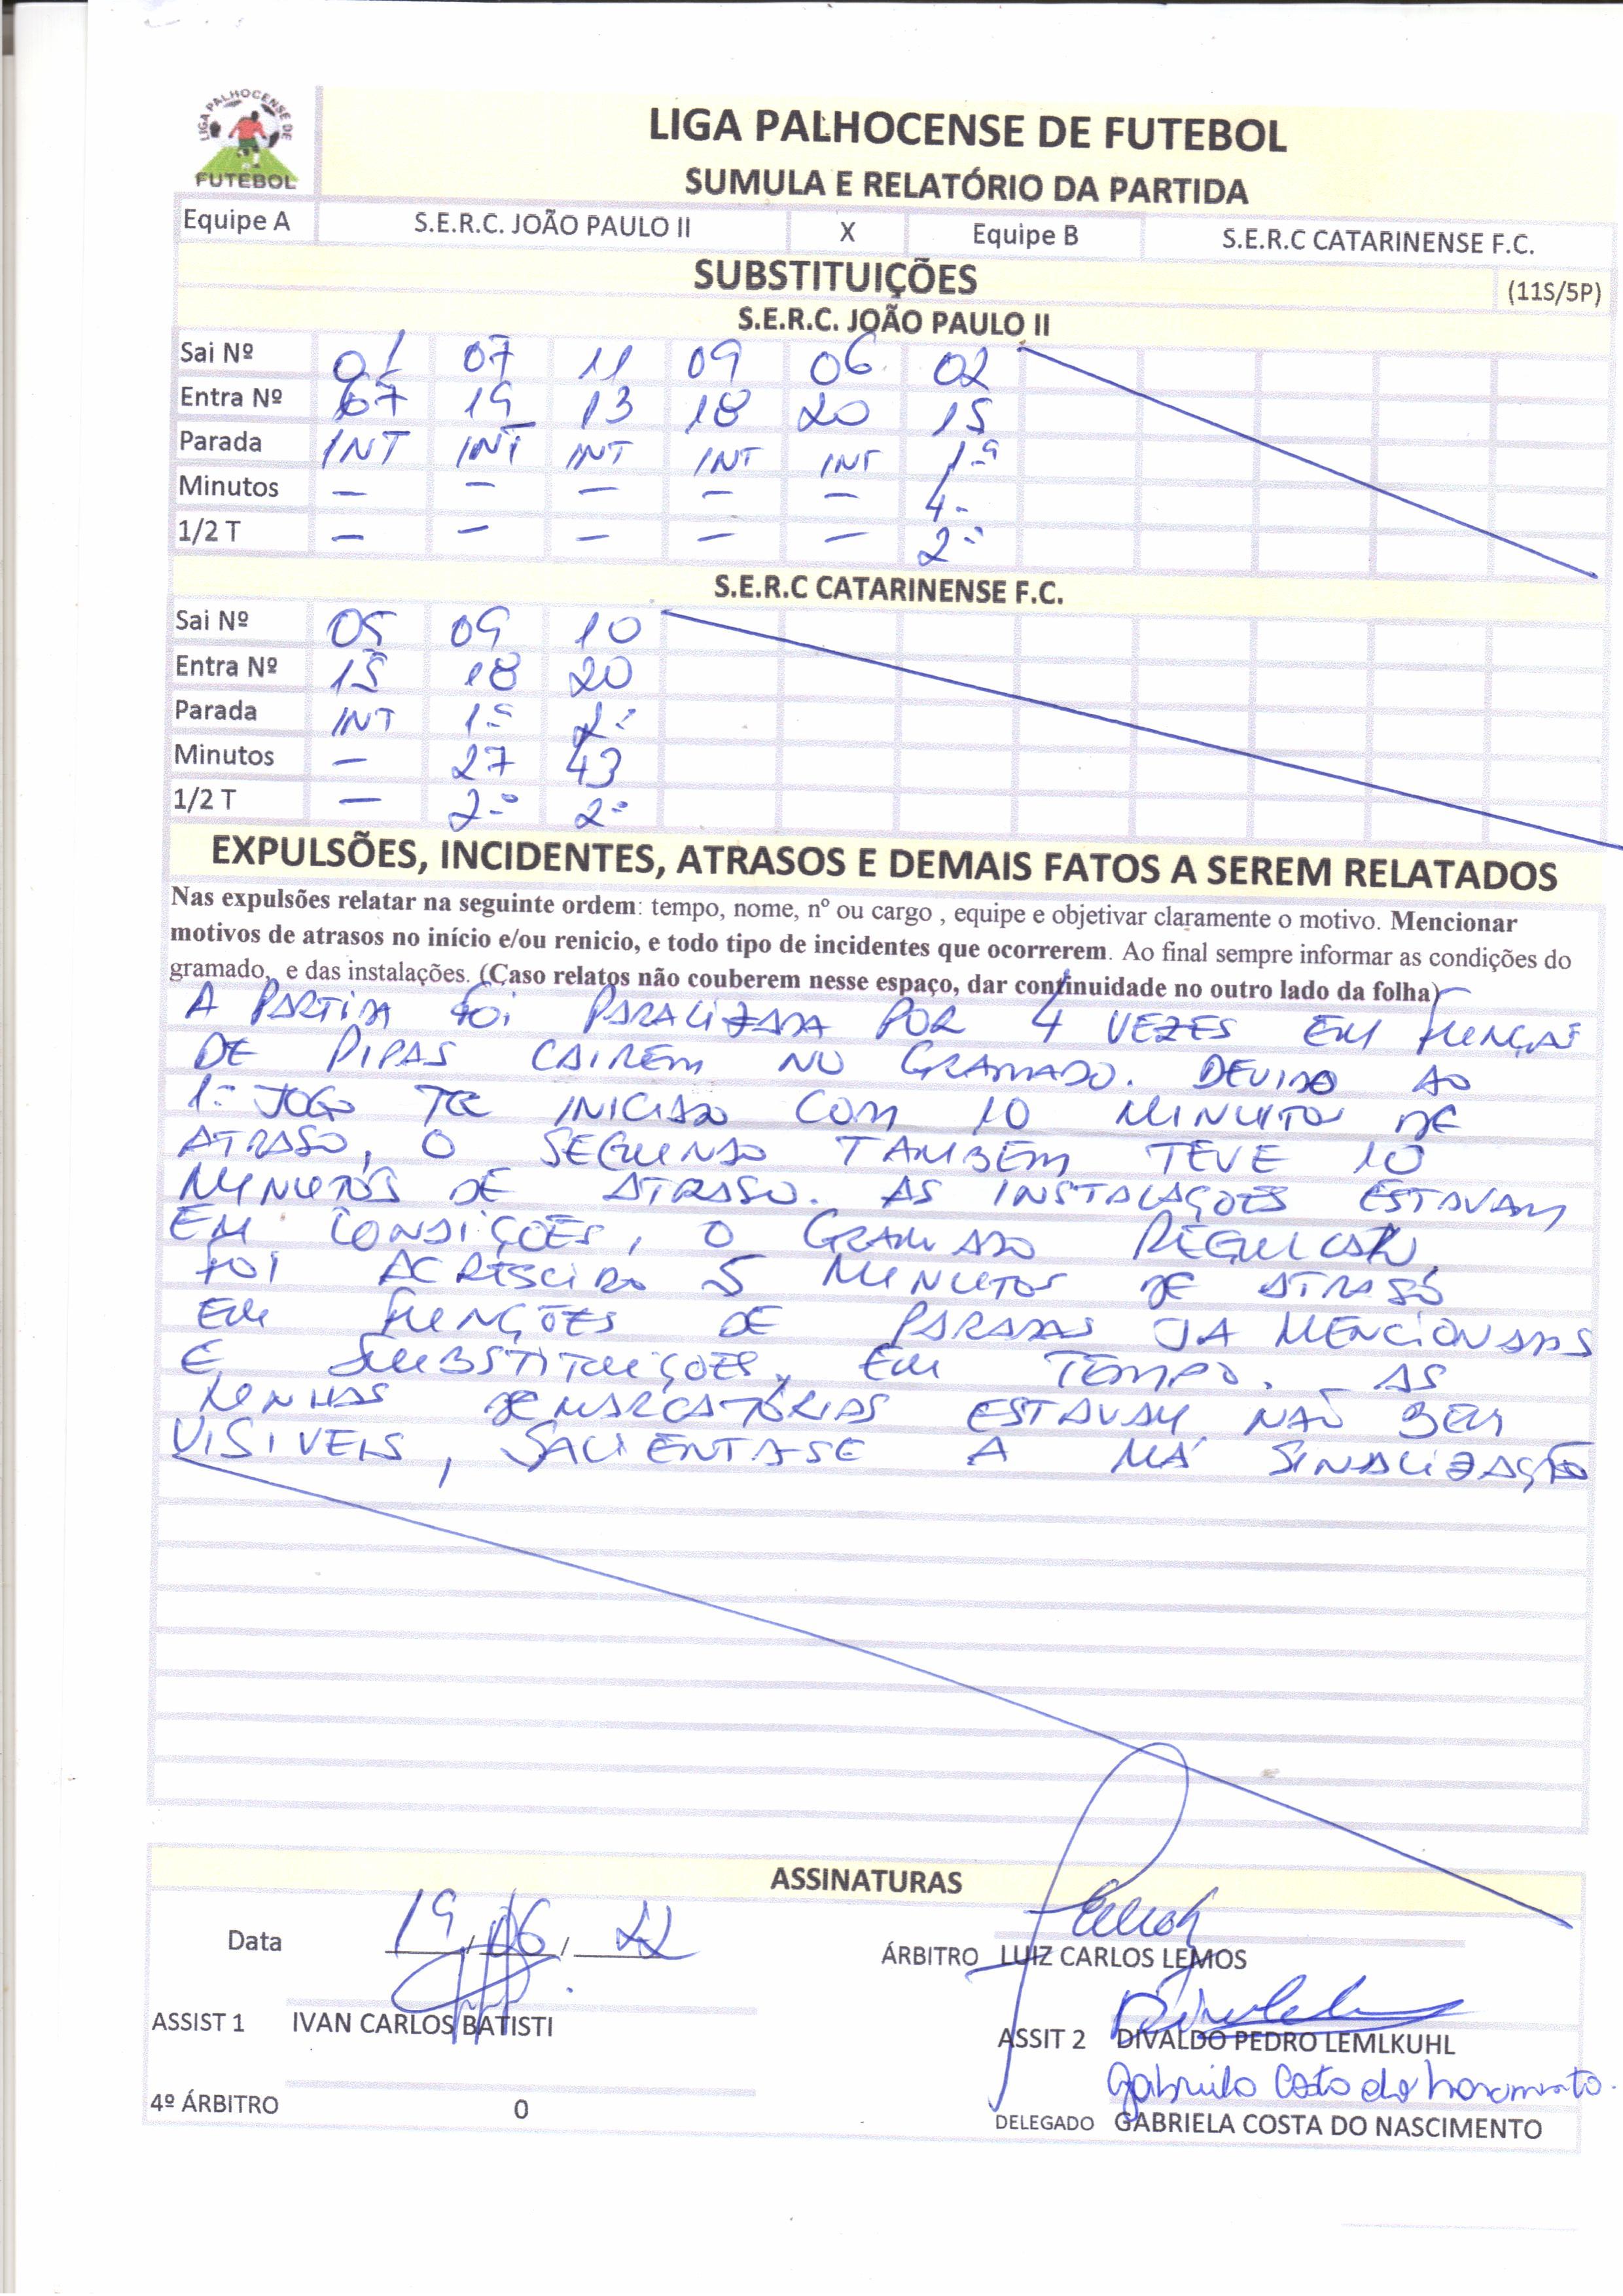 LIGA PALHOCENSE DE
FUTEBOL
LIGA PALHOCENSE DE FUTEBOL
SUMULA E RELATÓRIO DA PARTIDA
Equipe A S.E.R.C. JOÃO PAULO II X Equipe B S.E.R.C CATARINENSE F.C.
SUBSTITUIÇÕES (11S/5P)
S.E.R.C. JOÃO PAULO II
Sai Nº 01 07 11 09 06 02
Entra Nº 67 19 13 18 20 15
Parada INT INT INT INT INT 1ª
Minutos – – – – – 4-
1/2 T – – – – – 2º
S.E.R.C CATARINENSE F.C.
Sai Nº 05 09 10
Entra Nº 15 18 20
Parada INT 1ª 2ª
Minutos – 27 43
1/2 T – 2º 2º
EXPULSÕES, INCIDENTES, ATRASOS E DEMAIS FATOS A SEREM RELATADOS
Nas expulsões relatar na seguinte ordem: tempo, nome, nº ou cargo , equipe e objetivar claramente o motivo. Mencionar
motivos de atrasos no início e/ou renicio, e todo tipo de incidentes que ocorrerem. Ao final sempre informar as condições do
gramado, e das instalações. (Caso relatos não couberem nesse espaço, dar continuidade no outro lado da folha)
A PARTIDA FOI PARALIZADA POR 4 VEZES EM FUNÇAS
DE PIPAS CAIREM NO GRAMADO. DEVIDO AO
1º JOGO TER INICIADO COM 10 MINUTOS DE
ATRASO, O SEGUNDO TAMBÉM TEVE 10
MINUTOS DE ATRASO. AS INSTALAÇÕES ESTAVAM
EM CONDIÇÕES, O GRAMADO REGULAR,
FOI ACRESCIDO 5 MINUTOS DE ATRASO
EM FUNÇÕES DE PARADAS JA MENCIONADAS
E SUBSTITUIÇÕES, EM TEMPO. - AS
LINHAS DEMARCATÓRIAS ESTAVAM NAO BEM
VISIVEIS, SALIENTA-SE A MÁ SINALIZAÇÃO
ASSINATURAS
Data 19/06/22
ÁRBITRO LUIZ CARLOS LEMOS
ASSIST 1 IVAN CARLOS BATISTI
ASSIT 2 DIVALDO PEDRO LEMLKUHL
Gabriela Costa do Nascimento.
4º ÁRBITRO 0
DELEGADO GABRIELA COSTA DO NASCIMENTO